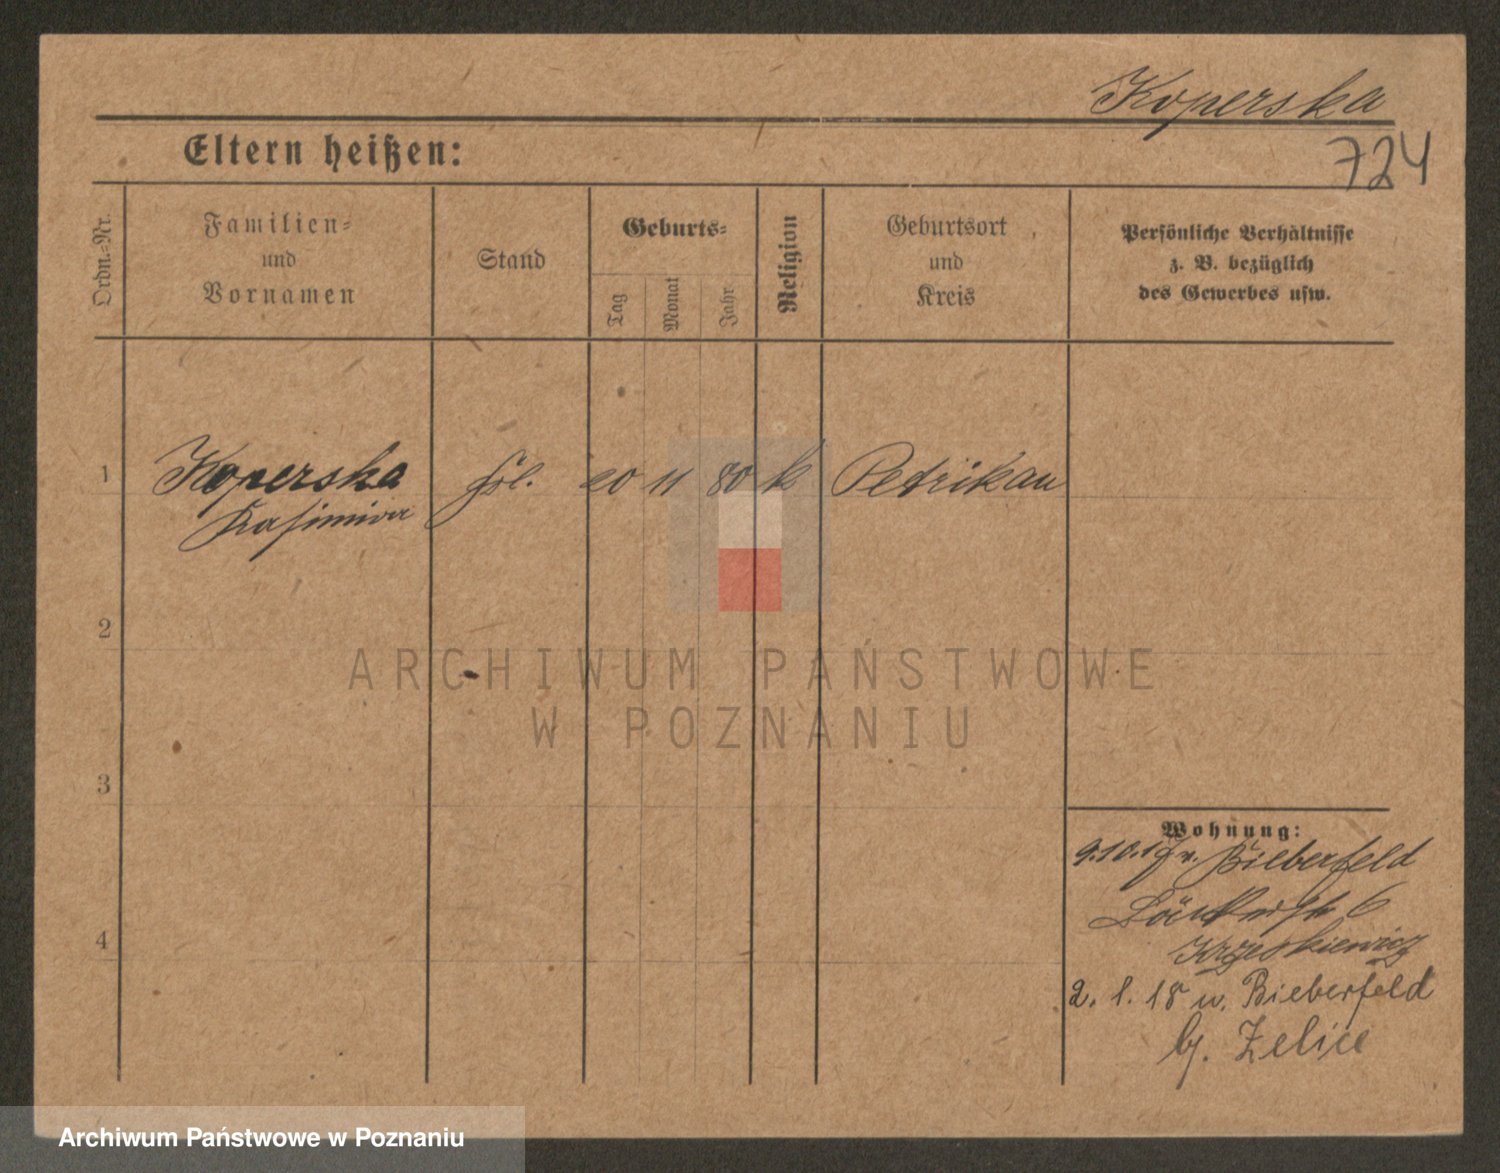 Koperska
724
Eltern heißen:
Ordn.-Nr.
Familien-
und
Vornamen
Stand
Geburts-
Tag
Monat
Jahr
Religion
Geburtsort
und
Kreis
Persönliche Verhältnisse
z. B. bezüglich
des Gewerbes usw.
1
Koperska
Kasimira
frl.
20 11 80 k
Petrikau
2
3
4
Wohnung:
9.10.17 v. Bieberfeld
6
Krzeskiewicz
2. 1. 18 w. Bieberfeld
by. Zelice
ARCHIWUM PAŃSTWOWE
W POZNANIU
Archiwum Państwowe w Poznaniu